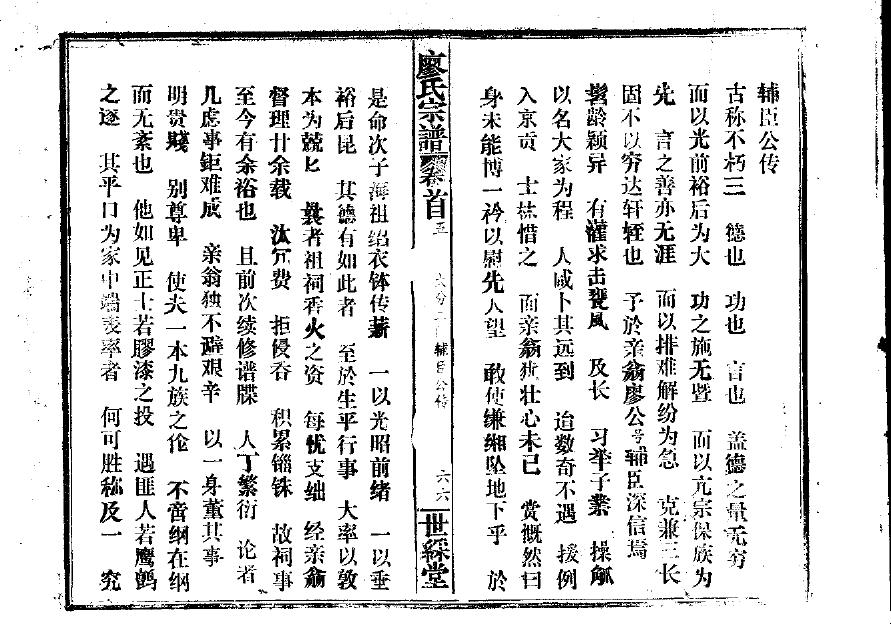 辅臣公传
古称不朽三 德也 功也 言也 盖德之量无穷
而以光前裕后为大 功之施无暨 而以亢宗保族为
先 言之善亦无涯 而以排难解纷为急 克兼三长
固不以穷达轩轾也 予於亲翁廖公号辅臣深信焉
髫龄颖异 有灌求击甕风 及长 习举子业 操觚
以名大家为程 人咸卜其远到 迨数奇不遇 援例
入京贡 士林惜之 而亲翁犹壮心未已 赏慨然曰
身未能博一衿以慰先人望 敢使缣缃坠地下乎 於
廖氏宗谱 卷首 五 大分二 辅臣公传 六六 世綵堂
是命次子海祖绍衣钵传薪 一以光昭前绪 一以垂
裕后昆 其德有如此者 至於生平行事 大率以敦
本为兢匕 曩者祖祠香火之资 每忧支绌 经亲翁
督理廿余载 汰冗费 拒侵吞 积累锱铢 故祠事
至今有余裕也 且前次续修谱牒 人丁繁衍 论者
几虑事鉅难成 亲翁独不避艰辛 以一身董其事
明贵贱 别尊卑 使夫一本九族之伦 不啻纲在纲
而无紊也 他如见正士若膠漆之投 遇匪人若鹰鹯
之逐 其平口为家中端表率者 何可胜称及一 究